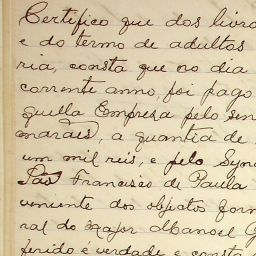 Certifico que dos livro
e do termo de adultos
ria, consta que no dia
corrente anno, foi pago
quella Empresa pelo sen
marães, a quantia de
um mil reis, e pelo Syn
Pao Francisco de Paula
veniente dos objectos for
ral do Major Manoel G
ferido é verdade e consta